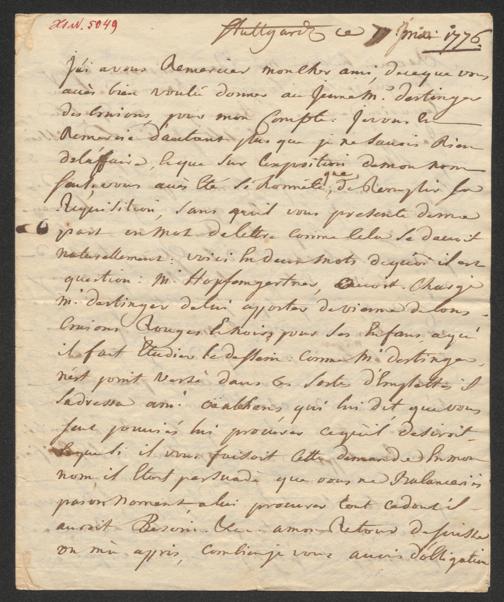 H.I.N. 5049
Stuttgardt ce 7 1776
J'ai a vous Remercier mon cher ami, de ce que vous
avès bien voulu donner au Jeune Mr. dertinger
des Craions, pour mon Compte. Je vous en
Remercie d'autant plus que je ne savais Rien
de l'affaire, & que sur l'exposition de mon nom
seul vous avès été si honnête que de Remplir sa
Requisition, sans qu'il vous presente de ma
part un mot de lettre comme cela se devoit
naturellement: voici En deux mots de quoi il est
question: Mr. Hopfengaertner, avoit Chargé
Mr. dertinger de lui apporter de vienne de bons
Craions Rouges & noirs pour ses Enfans a qui
il fait Etudier le dessein: comme Mr. dertinger
n'est point versé dans ces Sorte d'Emplettes il
s'adressa a Mr. qui lui dit que vous
seul pouviés lui procurer ce qu'il desiroit
& que si il vous faisoit Cette demande En mon
nom, il Etoit persuadé que vous ne Balanceriés
pas un Moment, a lui procurer tout ce dont il
auroit Besoin. a mon Retour de suisse
on m'a appris, combien je vous avois d'obligation